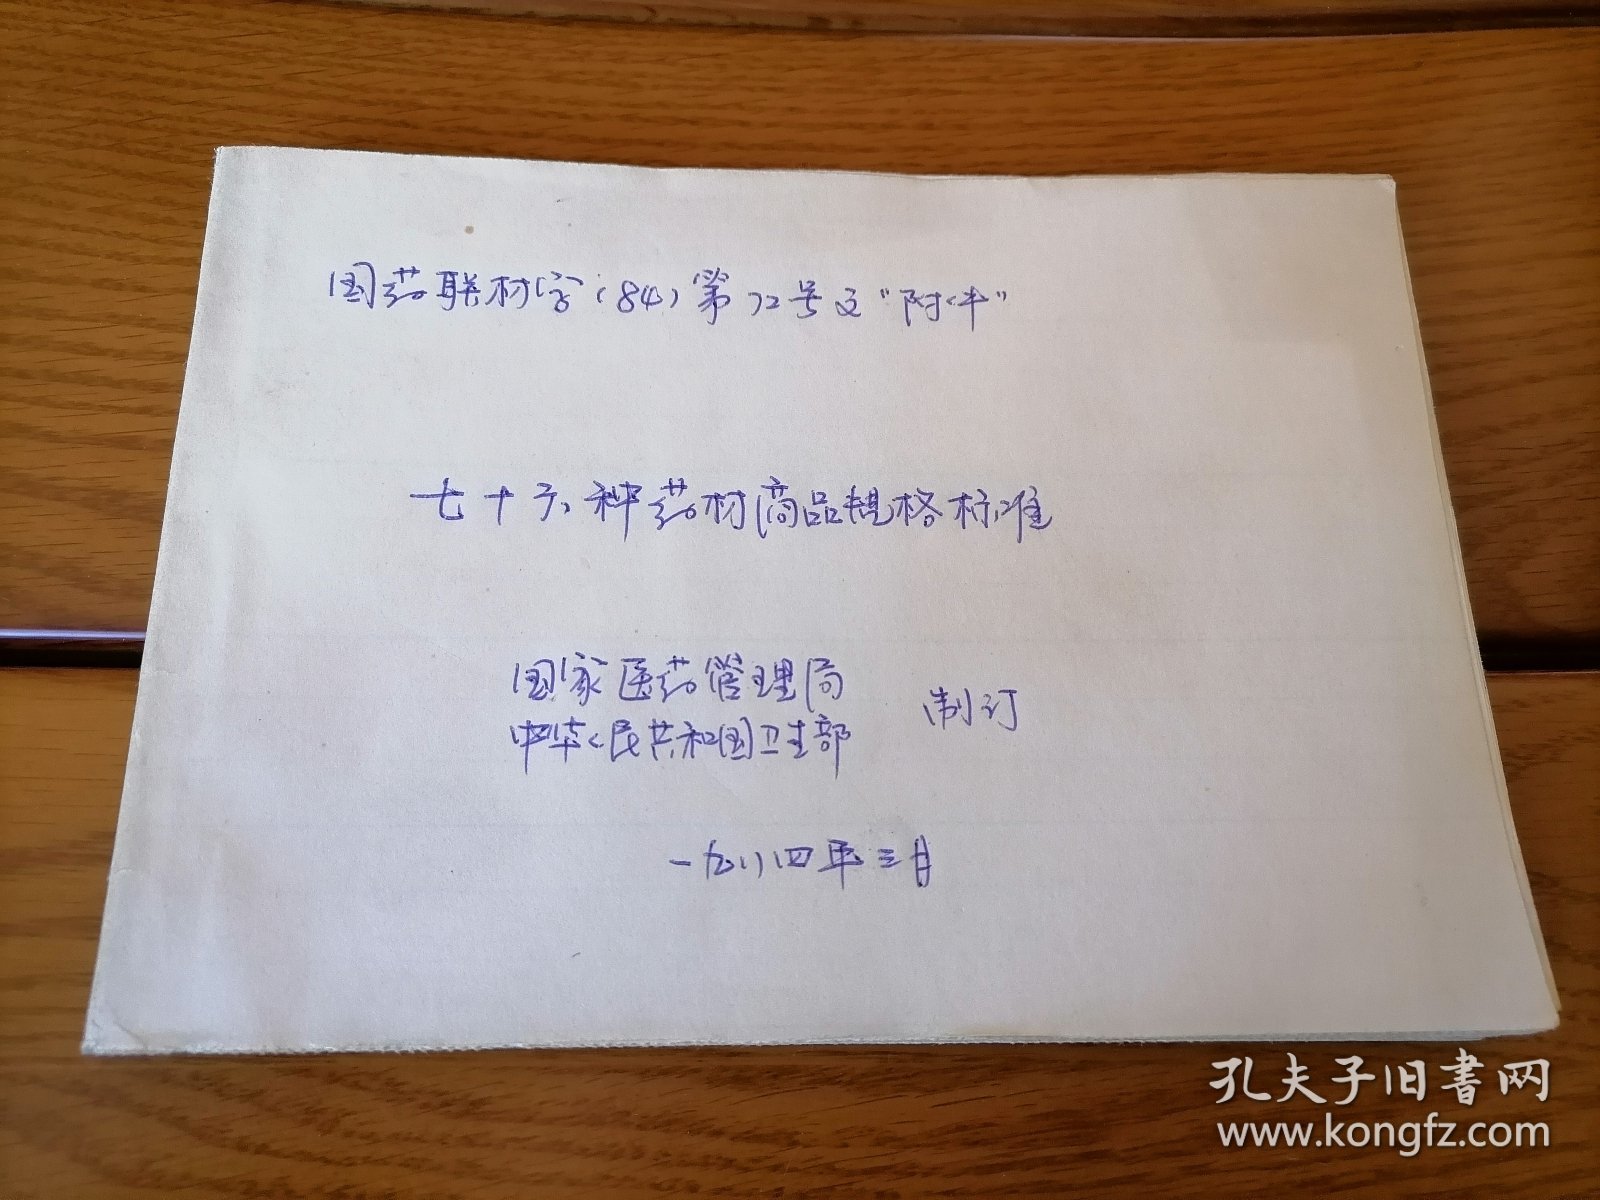 国药联材字(84)第72号文"附件"
七十六种药材商品规格标准
国家医药管理局
中华人民共和国卫生部
制订
一九八四年三月
孔夫子旧書网
www.kongfz.com